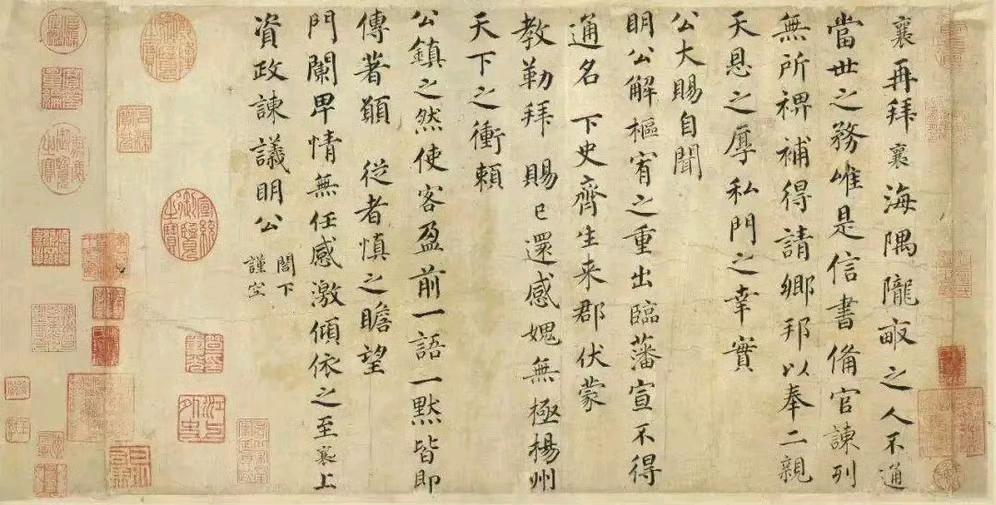 襄再拜襄海隅隴畝之人不通
當世之務唯是信書備官諫列
無所裨補得請鄉邦以奉二親
天恩之厚私門之幸實
公大賜自聞
明公解樞宥之重出臨藩宣不得
通名下史齊生來郡伏蒙
教勒拜賜已還感媿無極楊州
天下之衝賴
公鎮之然使客盈前一語一默皆即
傳著願從者慎之瞻望
門闌卑情無任感激傾依之至襄上
資政諫議明公
閤下
謹空